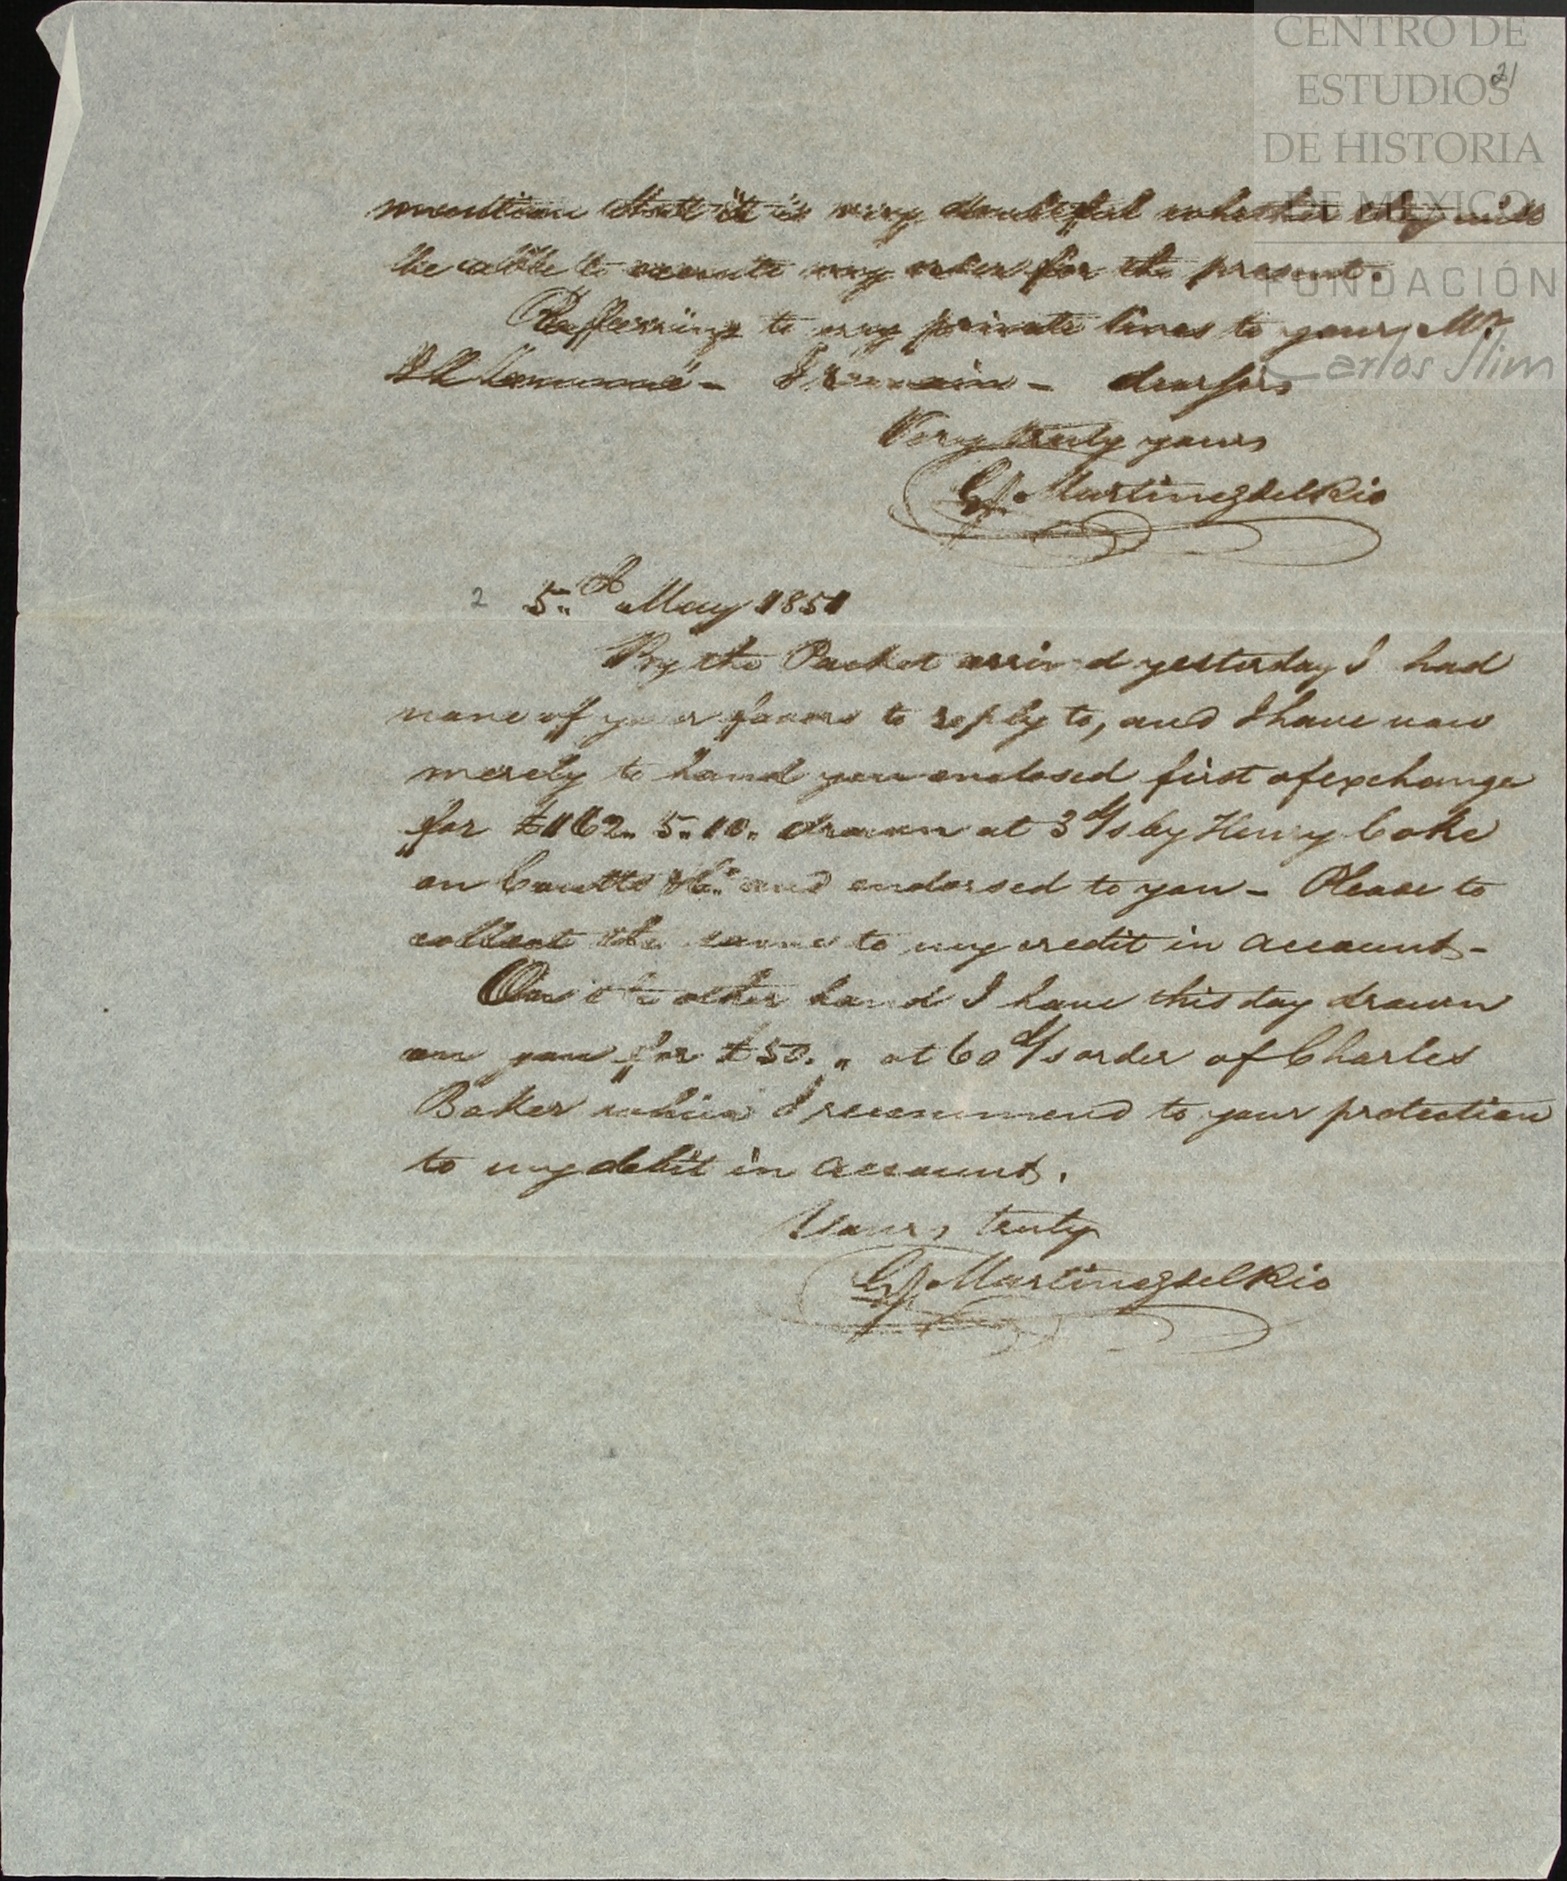 CENTRO DE
ESTUDIOS
21
DE HISTORIA
DE MEXICO
FUNDACIÓN
Carlos Slim
mention that it is very doubtful whether they will
be able to execute my order for the present.
Refferring to my private lines to your Mr
I remain - dear sirs
Very truly yours
G. Martinez del Rio
2 5th May 1851
By the Packet arrived yesterday I had
none of your favors to reply to, and I have now
merely to hand you enclosed first of exchange
for £162. 5. 10. drawn at 3 d/s by Henry Coke
on Coutts & Co. and endorsed to you - Please to
collect the same to my credit in account -
On the other hand I have this day drawn
on you for £50. " at 60 d/s order of Charles
Baker which I recommend to your protection
to my debit in account.
Yours truly
G. Martinez del Rio